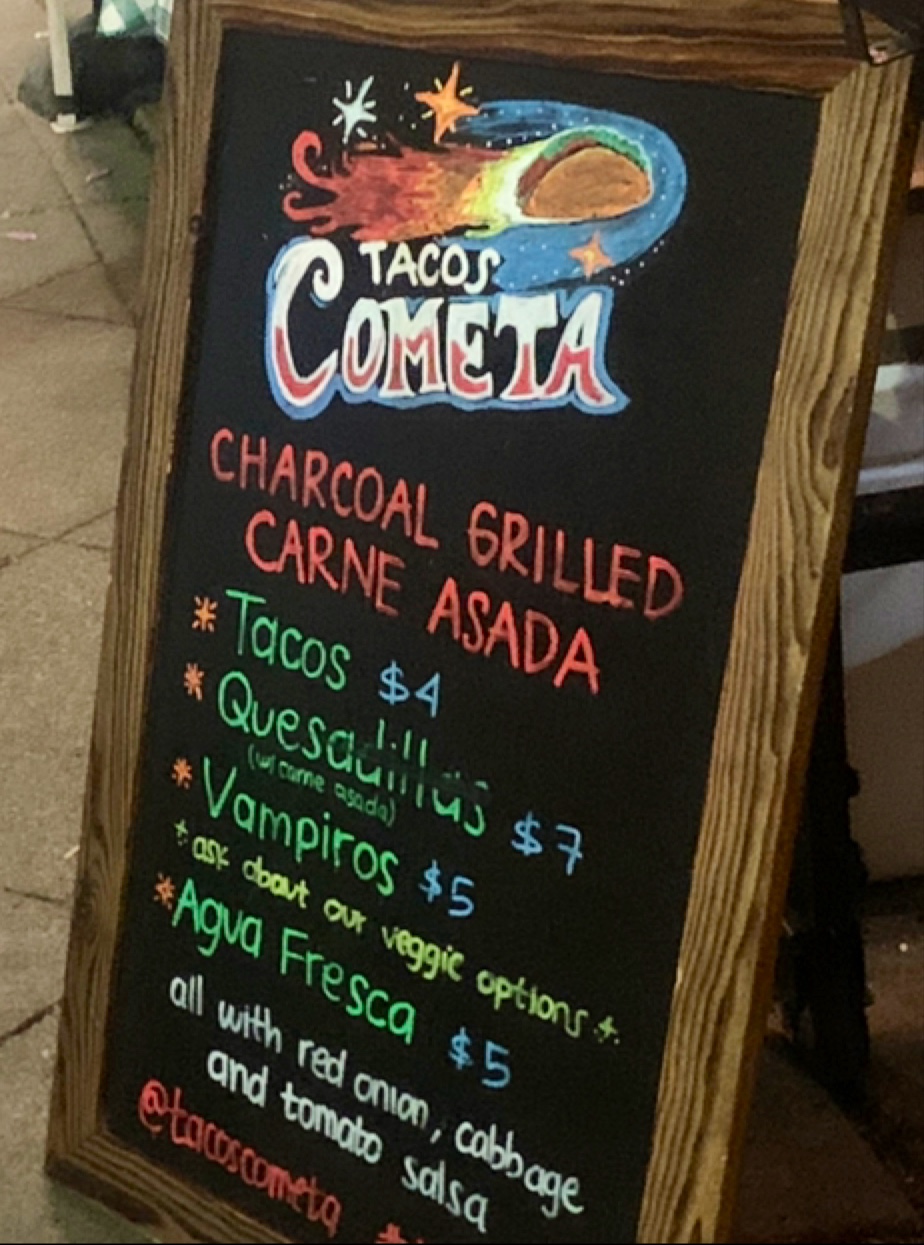 TACOS
COMETA
CHARCOAL GRILLED
CARNE ASADA
* Tacos $4
* Quesadillas $7
(w/ carne asada)
* Vampiros $5
* ask about our veggie options *
* Agua Fresca $5
all with red onion, cabbage
and tomato salsa
@tacoscometa